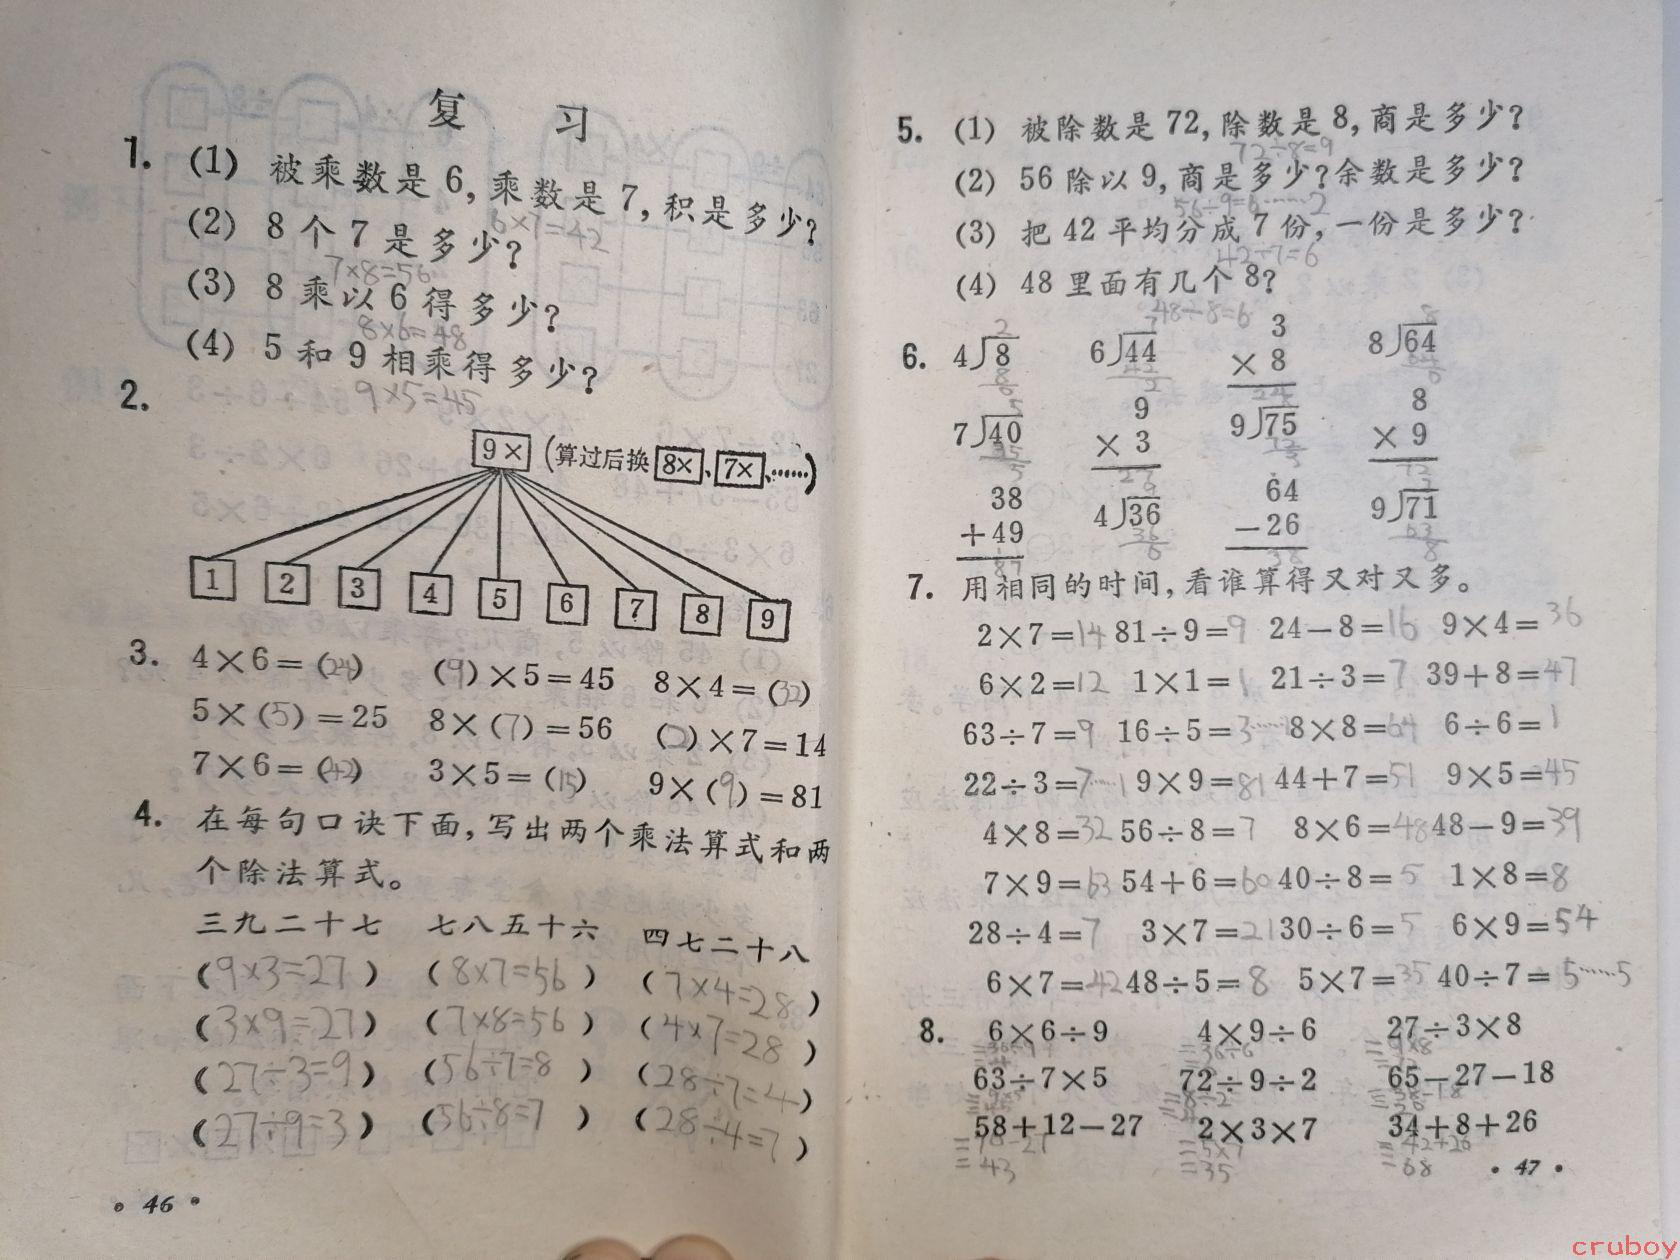 复 习
1. (1) 被乘数是6,乘数是7,积是多少?
6×7=42
(2) 8个7是多少?
7×8=56
(3) 8乘以6得多少?
8×6=48
(4) 5和9相乘得多少?
9×5=45
2.
9× (算过后换 8×、7×、……)
1 2 3 4 5 6 7 8 9
3. 4×6=(24) (9)×5=45 8×4=(32)
5×(5)=25 8×(7)=56 (2)×7=14
7×6=(42) 3×5=(15) 9×(9)=81
4. 在每句口诀下面,写出两个乘法算式和两
个除法算式。
三九二十七 七八五十六 四七二十八
(9×3=27) (8×7=56) (7×4=28)
(3×9=27) (7×8=56) (4×7=28)
(27÷3=9) (56÷7=8) (28÷7=4)
(27÷9=3) (56÷8=7) (28÷4=7)
• 46 •
5. (1) 被除数是72,除数是8,商是多少?
72÷8=9
(2) 56除以9,商是多少?余数是多少?
56÷9=6……2
(3) 把42平均分成7份,一份是多少?
42÷7=6
(4) 48里面有几个8?
48÷8=6
6. 4)8 6)44 3 8)64
× 8
24
7)40 9 9)75 8
× 3 × 9
27 72
38 4)36 64 9)71
+49 −26
87 38
7. 用相同的时间,看谁算得又对又多。
2×7=14 81÷9=9 24−8=16 9×4=36
6×2=12 1×1=1 21÷3=7 39+8=47
63÷7=9 16÷5=3……1 8×8=64 6÷6=1
22÷3=7……1 9×9=81 44+7=51 9×5=45
4×8=32 56÷8=7 8×6=48 48−9=39
7×9=63 54+6=60 40÷8=5 1×8=8
28÷4=7 3×7=21 30÷6=5 6×9=54
6×7=42 48÷5=8 5×7=35 40÷7=5……5
8. 6×6÷9 4×9÷6 27÷3×8
=36÷6 =9×8
63÷7×5 72÷9÷2 65−27−18
=8÷2 =38−18
58+12−27 2×3×7 34+8+26
=70−27 =5×7 =42+26
=43 =35 =68
• 47 •
cruboy